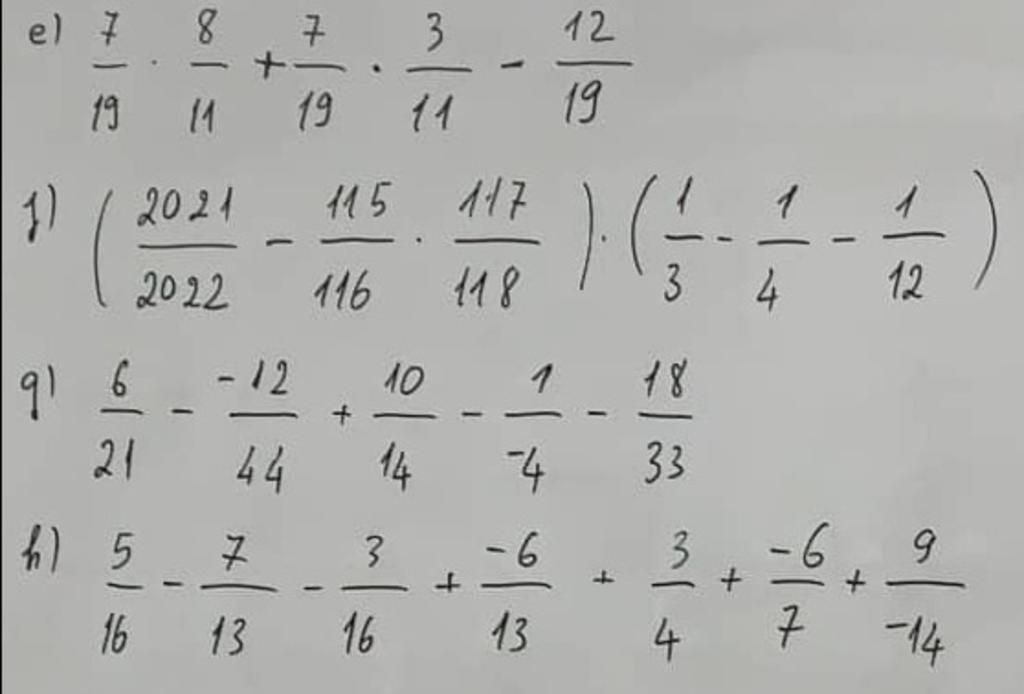 e) 7/19 · 8/11 + 7/19 · 3/11 - 12/19
f) (2021/2022 - 115/116 · 117/118) · (1/3 - 1/4 - 1/12)
g) 6/21 - -12/44 + 10/14 - 1/-4 - 18/33
h) 5/16 - 7/13 - 3/16 + -6/13 + 3/4 + -6/7 + 9/-14